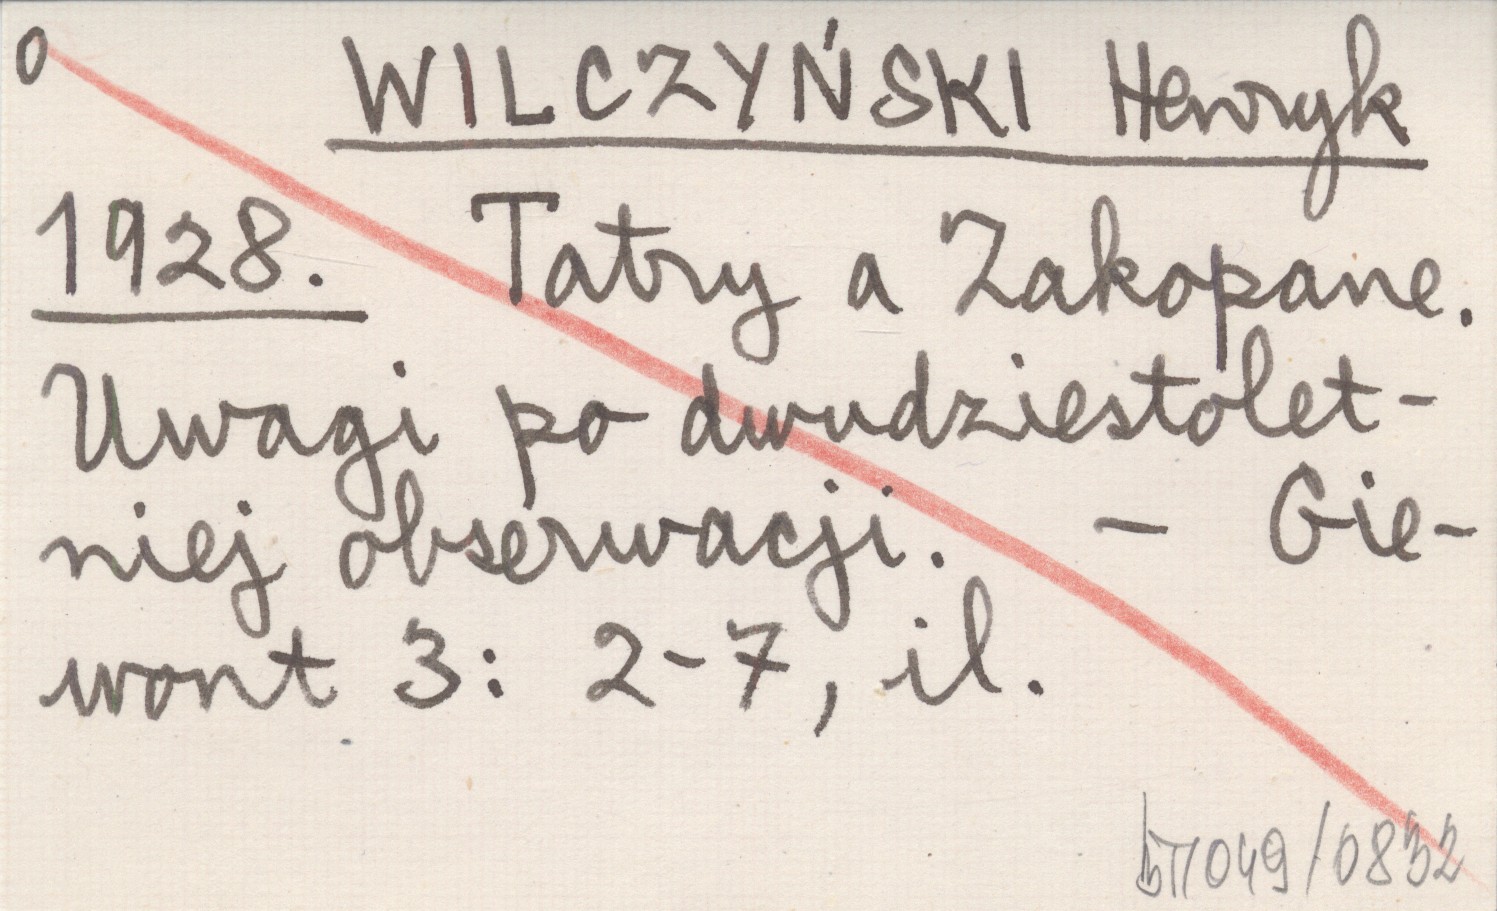 0 WILCZYŃSKI Henryk
1928. Tatry a Zakopane.
Uwagi po dwudziestolet-
niej obserwacji. - Gie-
wont 3: 2-7, il.
049/0832